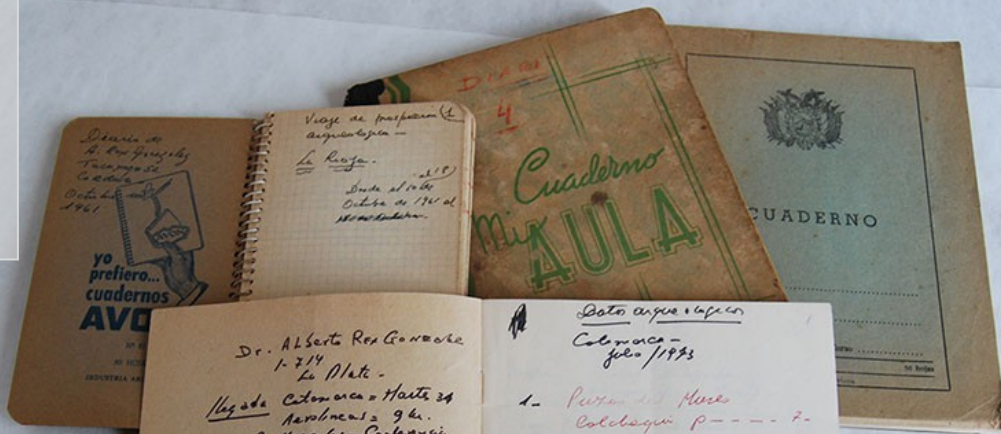 Diario de
A. Rex Gonzalez
Octubre
1961
yo
prefiero...
cuadernos
AVO
INDUSTRIA AR
Viaje de prospeccion 1
arqueologica -
La Rioja.
Desde el 10 de
Octubre de 1961 al
DIARIO
4
Cuaderno
Mi
AULA
CUADERNO
50 hojas
Dr. Alberto Rex Gonzalez
1-714
La Plata -
Llegada Catamarca = Martes 31
Aerolineas = 9 hr.
Conferencia
Datos arqueologicos
Catamarca -
Julio/1973
1-